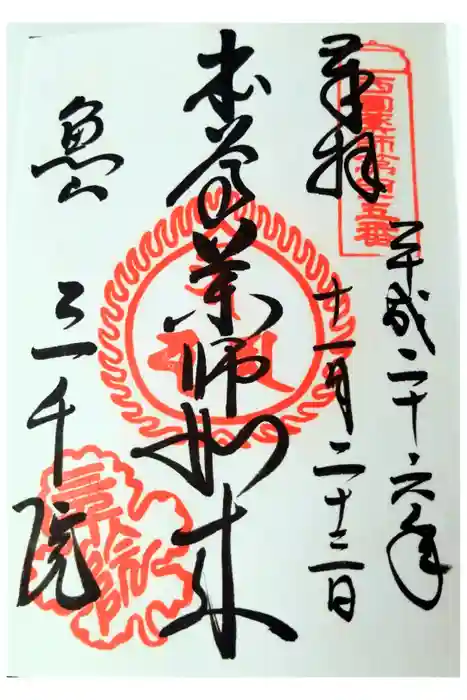 奉拝
西国薬師第四十五番
平成二十六年
十一月二十三日
本尊薬師如来
魚山
三千院
三千院